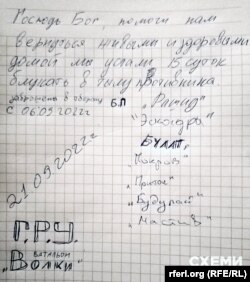 Господь Бог, помоги нам
вернуться живыми и здоровыми
домой мы устали 15 суток
блукать в тылу противника.
заброшены в оборону Б.П
с 06.09.2022г
"Рашид"
"Эскадра"
Булат,
"Покров"
"Будулай"
"Мастив"
21.09.2022г
Г.Р.У.
батальон
"Волки"
СХЕМИ
rferl.org (RFE/RL)